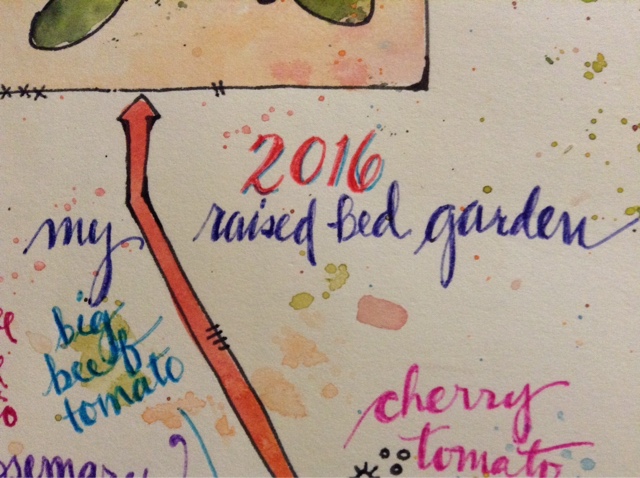 2016
my raised bed garden
big
beef
tomato
cherry
tomato